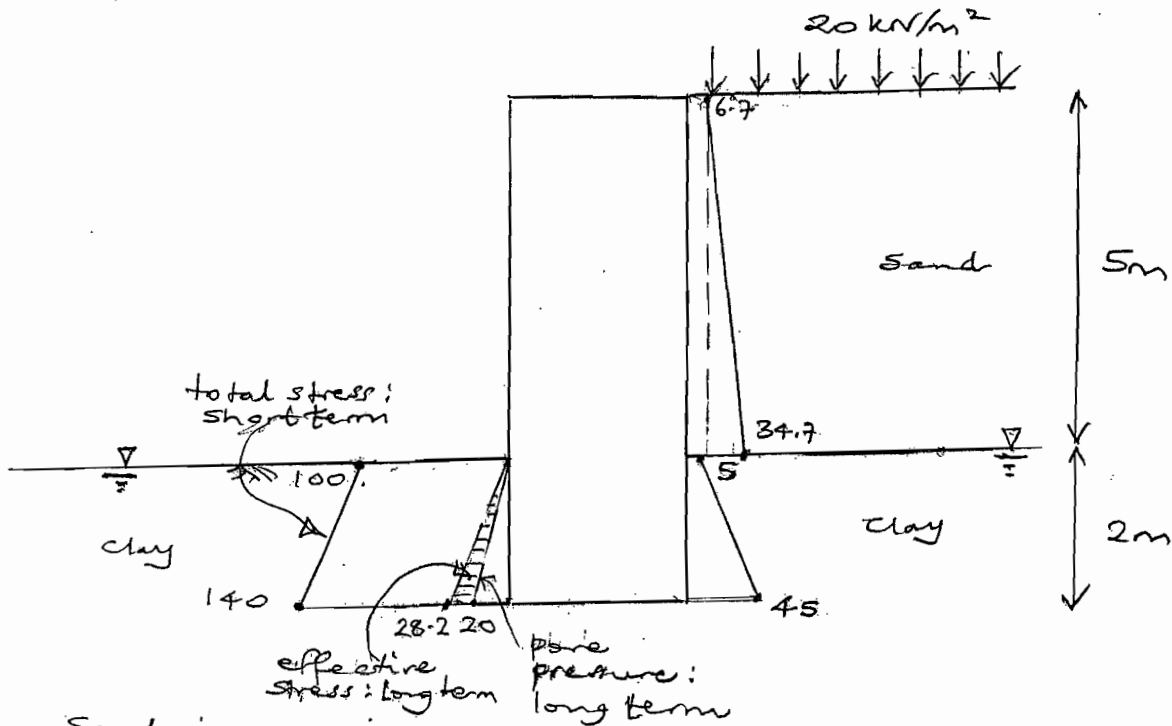 20 kN/m²
6.7
Sand
5m
total stress:
short term
34.7
100.
5
clay
clay
2m
140
45
28.2 20
effective
stress: long term
pore
pressure:
long term